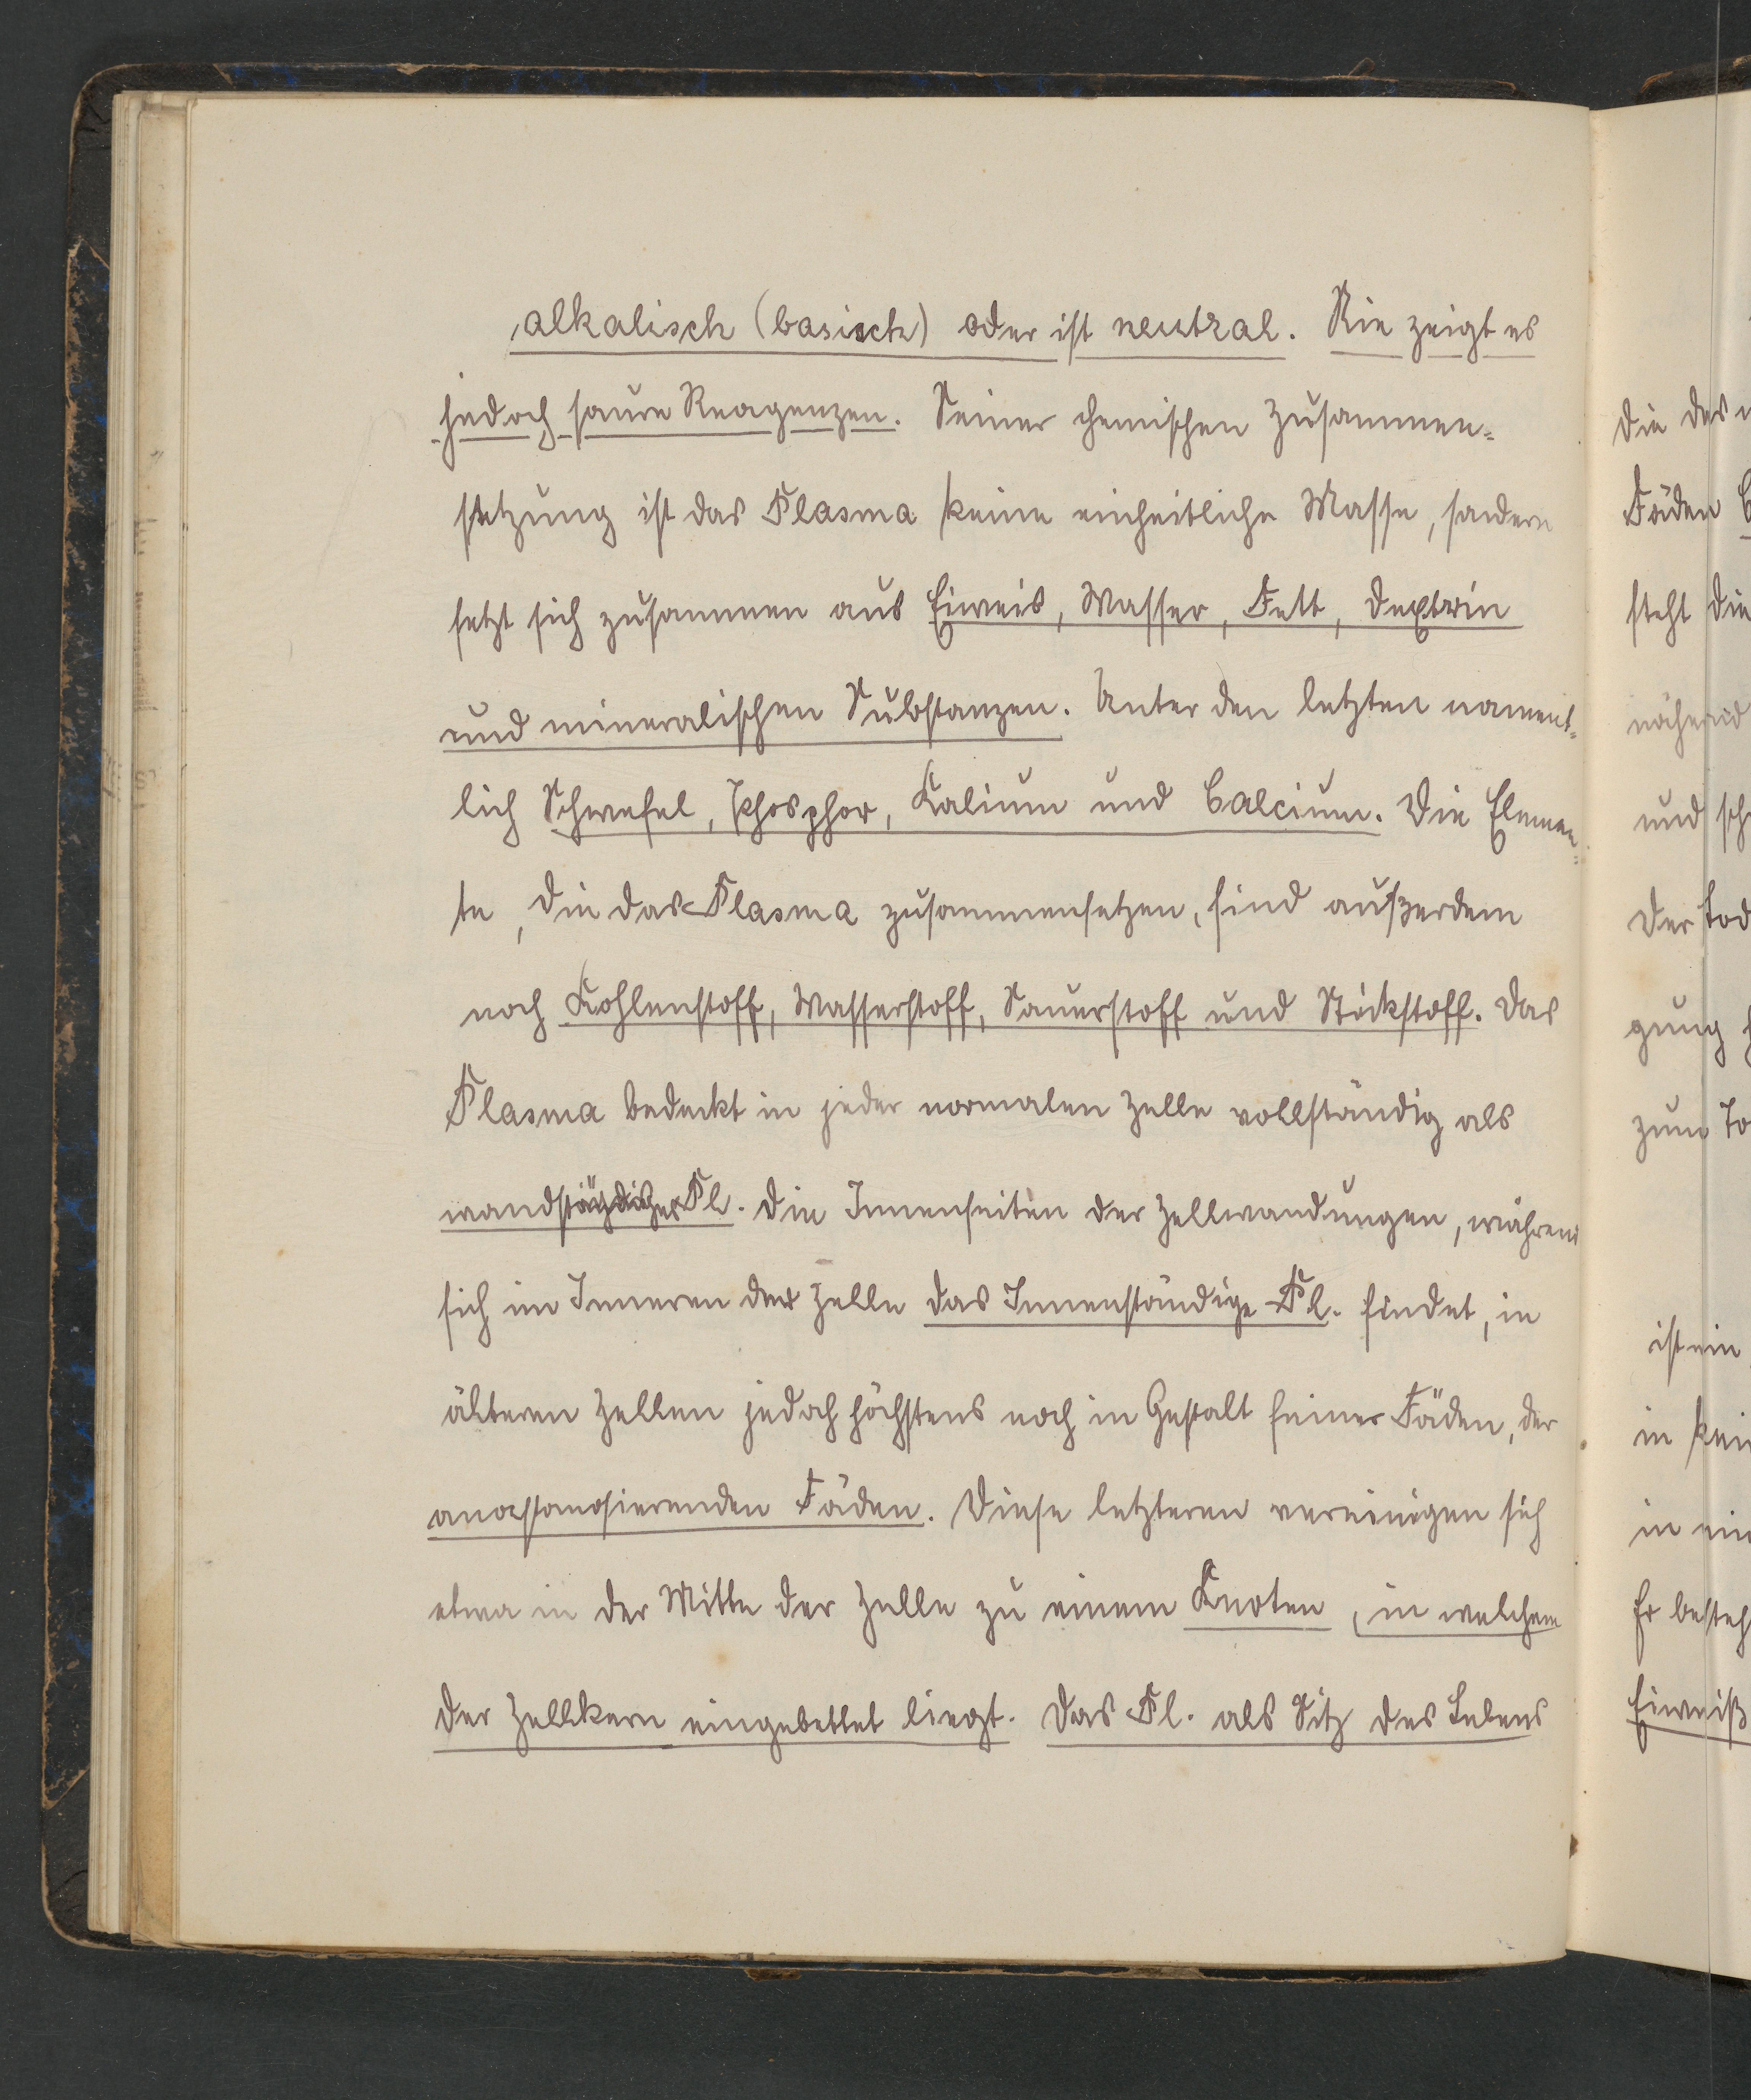 alkalisch (basisch) oder ist neutral. Nie zeigt es
jedoch saure Reagenzen. Seiner chemischen Zusammen-
setzung ist das Plasma keine einheitliche Masse, sondern
setzt sich zusammen aus Eiweis, Wasser, Fett, Dextrin
und mineralischen Substanzen. Unter den letzten nament-
lich Schwefel, Phosphor, Kalium und Calcium. Die Elemen-
te, die das Plasma zusammensetzen, sind außerdem
noch Kohlenstoff, Wasserstoff, Sauerstoff und Stickstoff. Das
Plasma bedeckt in jeder normalen Zelle vollständig als
wandständiges Pl. die Innenseiten der Zellwandungen, während
sich im Inneren der Zelle das Innenständige Pl. findet, in
älteren Zellen jedoch höchstens noch in Gestalt feiner Fäden, der
anastomosierenden Fäden. Diese letzteren vereinigen sich
etwa in der Mitte der Zelle zu einem Knoten, in welchem
der Zellkern eingebettet liegt. Das Pl. als Sitz des Lebens
die des
Fäden
steht die
und sch
Der Tod
gung
zum To
ist ein
in kei
in ein
Er besteh
Eiweiß